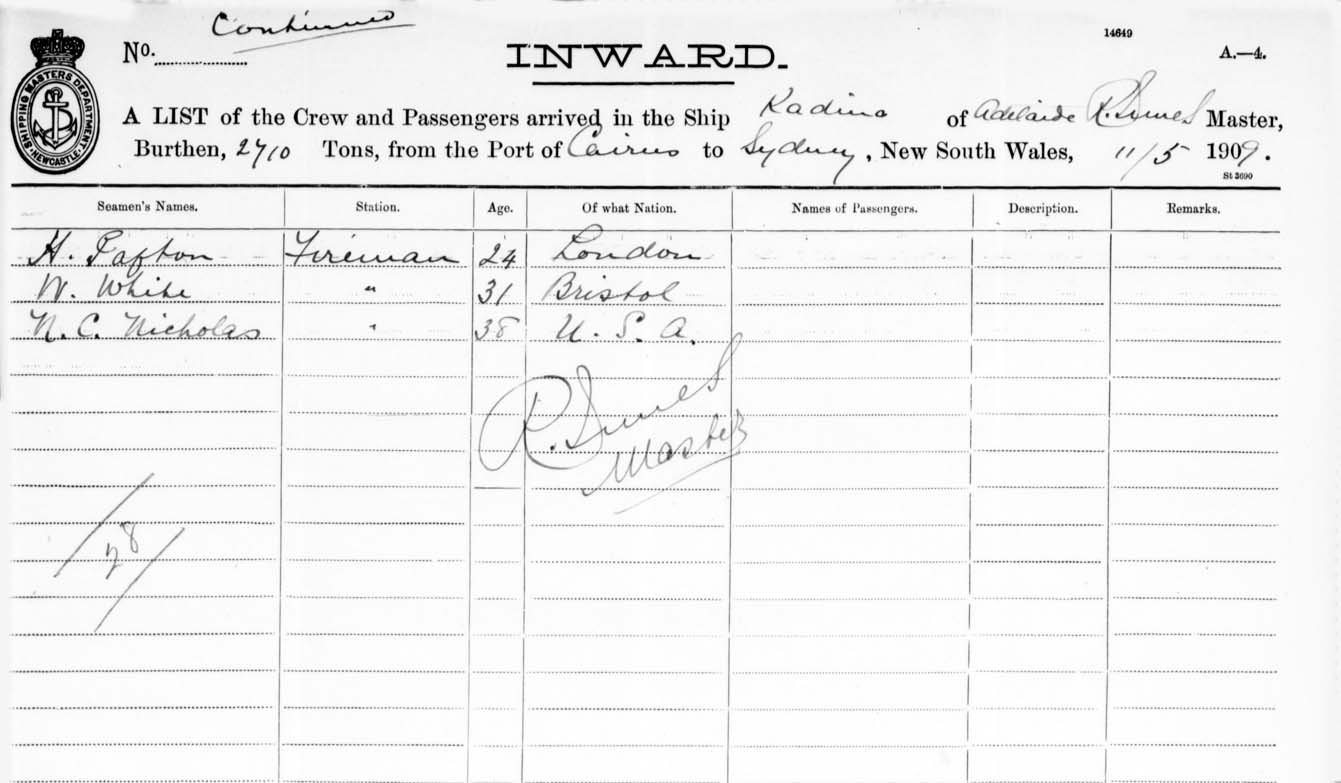 Continued
14649
No.
INWARD.
A.—4.
SHIPPING MASTERS DEPARTMENT
NEWCASTLE
A LIST of the Crew and Passengers arrived in the Ship Kadina of Adelaide R. Master,
Burthen, 2710 Tons, from the Port of Cairns to Sydney, New South Wales, 11/5 1909.
St 3690
Seamen's Names. Station. Age. Of what Nation. Names of Passengers. Description. Remarks.
H. Fireman 24 London
W. White " 31 Bristol
N. C. Nicholas " 38 U. S. A.
R.
Master
28